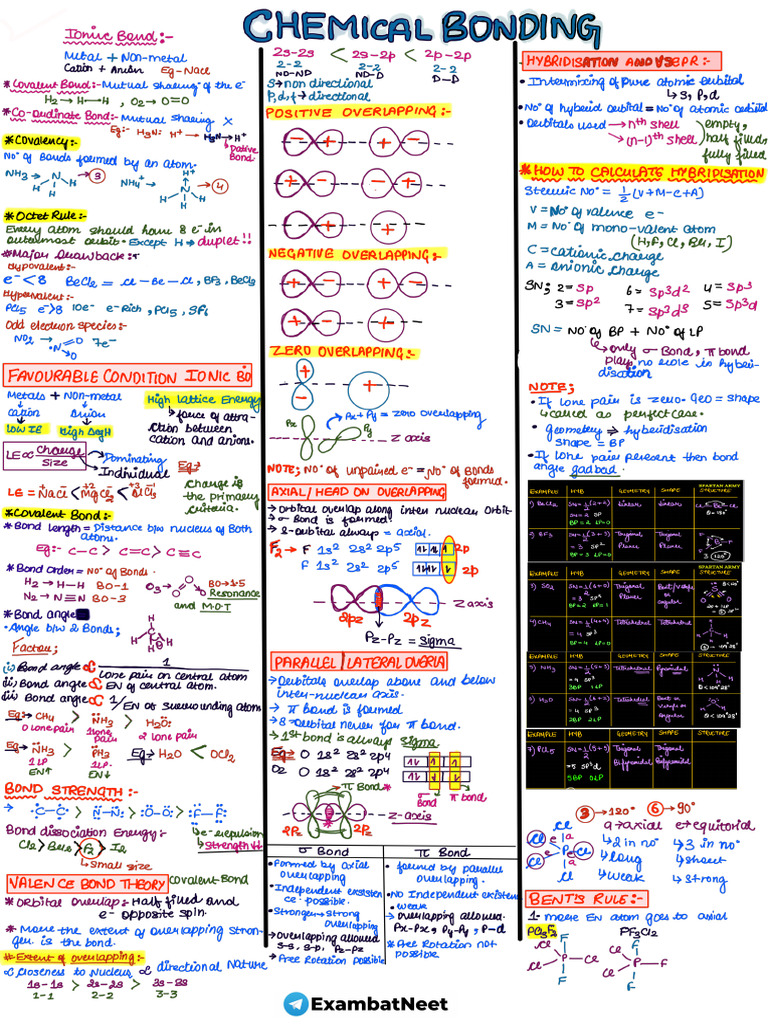 CHEMICAL BONDING
Ionic Bond:-
Metal + Non-metal
Cation + Anion Eg-Nacl
*Covalent Bond:- Mutual shaering of the e-
H2 → H—H , O2 → O=O
*Co-ordinate Bond:- Mutual shaeing X
Eg:- H3N: H+ → H3N→H+
Dative
Bond
*Covalency:-
No° of Bonds formed by an atom.
NH3 → N H H H → 3 NH4+ → H+ N H H H → 4
*Octet Rule:-
Every atom should have 8 e- in
outermost orbit. Except H → duplet!!
*Major Drawback:-
Hypovalent:-
e- < 8 BeCl2 = Cl - Be - Cl, BF3, BeCl2
Hypervalent:-
PCl5 e->8 10e- e-Rich, PCl5, SF6
Odd electron species:-
NO2 → N=O 7e-
O
FAVOURABLE CONDITION IONIC BO
Metals + Non-metal High Lattice Energy
Cation Anion → force of attra-
Low IE High ΔegH ction between
cation and anions.
LE ∝ Charge → Dominating
size → Individual
Eg:→
Charge is
the primary
criteria.
LE = NaCl < MgCl2 < AlCl3
+1 +2 +3
*Covalent Bond:-
*Bond Length = Distance b/w nucleus of Both
atoms.
Eg:- C-C > C=C > C≡C
*Bond Order = No° of Bonds.
H2 → H-H BO-1 O3 → O O O BO→1.5
N2 → N≡N BO-3 Resonance
and M.O.T
*Bond angle
•Angle b/w 2 Bonds; H C H H H
Factors;
(i) Bond angle ∝ 1
Lone pair on central atom
(ii) Bond angle ∝ EN of central atom.
(iii) Bond angle ∝ 1/EN of surrounding atom
Eg:→ CH4 > NH3 > H2O:
0 lone pair 1 lone pair 2 lone pair
Eg→ NH3 > PH3 Eg→ H2O < OCl2
1LP 1LP
EN↑ EN↓
BOND STRENGTH:-
→ C-C > N-N: > :O-O: > F-F:
Bond dissociation Energy:- ↳e- repulsion
Cl2 > Br2 > F2 > I2 ↳Strength↓↓
↳Small size
VALENCE BOND THEORY Covalent Bond
*Orbital Overlap: Half filled and
e- opposite spin.
* More the extent of overlapping stron-
ger is the bond.
* Extent of overlapping:-
∝ Closeness to Nucleus ∝ directional Nature
1s-1s > 2s-2s > 3s-3s
1-1 2-2 3-3
2s-2s < 2s-2p < 2p-2p
2-2 2-2 2-2
ND-ND ND-D D-D
S → non directional
P, d, f → directional
POSITIVE OVERLAPPING:-
- + + -
+ - - +
- + +
NEGATIVE OVERLAPPING:-
+ - + -
+ - +
ZERO OVERLAPPING:-
+ - +
Px Py Px+Py = zero overlapping
Z axis
NOTE; No° of unpaired e- = No° of Bonds
formed.
AXIAL/HEAD ON OVERLAPPING
→ Orbital overlap along inter nuclear orbit-
→ σ Bond is formed.
→ S-Orbital always = axial.
F2 → F 1s2 2s2 2p5 2p
F 1s2 2s2 2p5 2p
Z axis
2pz 2pz
Pz-Pz = sigma
PARALLEL/LATERAL OVERLA
→ Orbitals overlap above and below
inter-nuclear axis.
→ π bond is formed
→ S-Orbital never for π bond.
→ 1st bond is always sigma.
Eg:→ O 1s2 2s2 2p4
O2 O 1s2 2s2 2p4
π Bond* σ bond π bond
z-axis
2Pz 2Pz
σ Bond
•Formed by axial
overlapping
•Independent existen
ce possible.
•Stronger→strong
overlapping
→overlapping allowed
S-S, S-P, Pz-Pz
→Free Rotation Possible
π Bond
• formed by parallel
overlapping.
•No Independent existence
•weak
→ overlapping allowed.
Px-Px, Py-Py, P-d
* Free Rotation not
possible
HYBRIDISATION AND VSEPR:-
• Intermixing of Pure atomic orbital
↳ S, P, d
• No° of hybrid orbital = No° of atomic orbital
• Orbitals used → nth shell
→ (n-1)th shell
empty,
half filled,
fully filled
*HOW TO CALCULATE HYBRIDISATION
Steric No° = 1/2 (V+M-C+A)
V = No° of valence e-
M = No° of mono-valent atom
(H, F, Cl, Br, I)
C = cationic charge
A = anionic charge
SN; 2 = sp 6 = sp3d2 4 = sp3
3 = sp2 7 = sp3d3 5 = sp3d
SN = No° of BP + No° of LP
↳ only σ Bond, π bond
plays no role in hybri-
disation
NOTE;
•If lone pair is zero. Geo = shape
↳called as perfect case.
• geometry ⇒ hybridisation
shape = BP
•If Lone pair present then bond
angle gadbad.
SPARTAN ARMY
EXAMPLE HYB GEOMETRY SHAPE STRUCTURE
1) BeCl2 SN=1/2(2+2) Linear Linear Cl-Be-Cl
= 2 SP B=180°
BP=2 LP=0
2) BF3 SN=1/2(3+3) Trigonal Trigonal
= 3 SP2 Planar Planar 120°
BP=3 LP=0
SPARTAN ARMY
EXAMPLE HYB GEOMETRY SHAPE STRUCTURE
3) SO2 SN=1/2(6+0) Trigonal Bent/V shape
= 3 SP2 Planar or
BP=2 LP=1 angular
4) CH4 SN=1/2(4+4) Tetrahedral Tetrahedral
= 4 SP3 109°28'
5) NH3 SN=1/2(5+3) Tetrahedral Pyramidal
= 4 SP3
3BP 1LP B<109°28'
6) H2O SN=1/2(6+2) Tetrahedral Bent or
= 4 SP3 V shape or
2BP 2LP Angular B<109°28'
EXAMPLE HYB GEOMETRY SHAPE STRUCTURE
7) PCl5 SN=1/2(5+5) Trigonal Trigonal
=5 SP3d Bipyramidal Bipyramidal
5BP 0LP
3→120° 6→90°
Cl a→axial e→equitorial
Cl e a ↳2 in no° ↳3 in no°
e P Cl ↳long ↳short
Cl e a ↳weak ↳strong
Cl
BENT'S RULE:-
1- more EN atom goes to axial
PCl3F2 PF3Cl2
F F
Cl P Cl Cl P F
Cl F Cl F
ExambatNeet